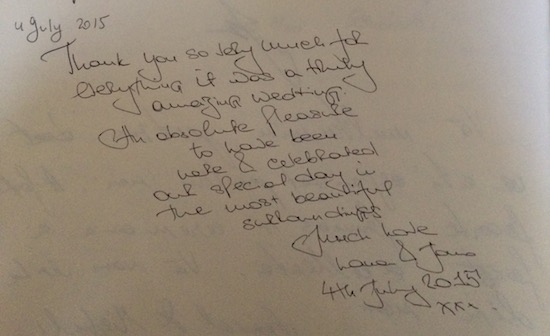 4 July 2015
Thank you so very much for
everything it was a truly
amazing wedding.
An absolute pleasure
to have been
here & celebrated
our special day in
the most beautiful
surroundings
Much love
&
4th July 2015
xxx